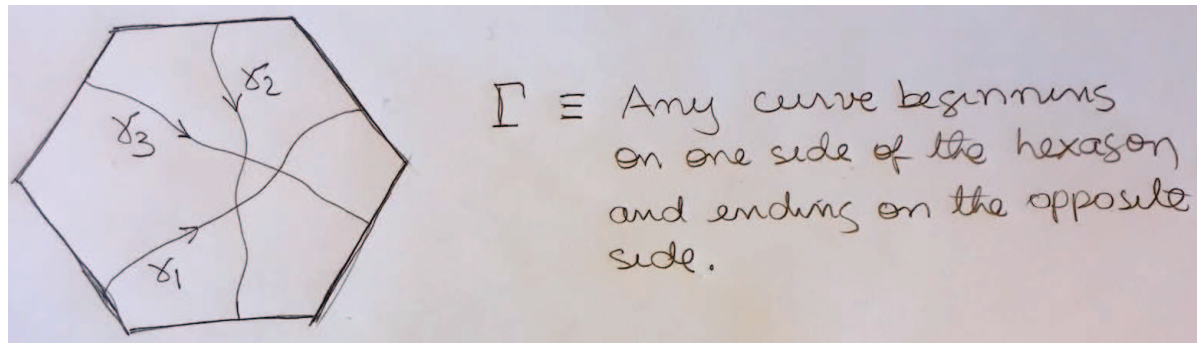 γ2
γ3
γ1
Γ ≡ Any curve beginning
on one side of the hexagon
and ending on the opposite
side.